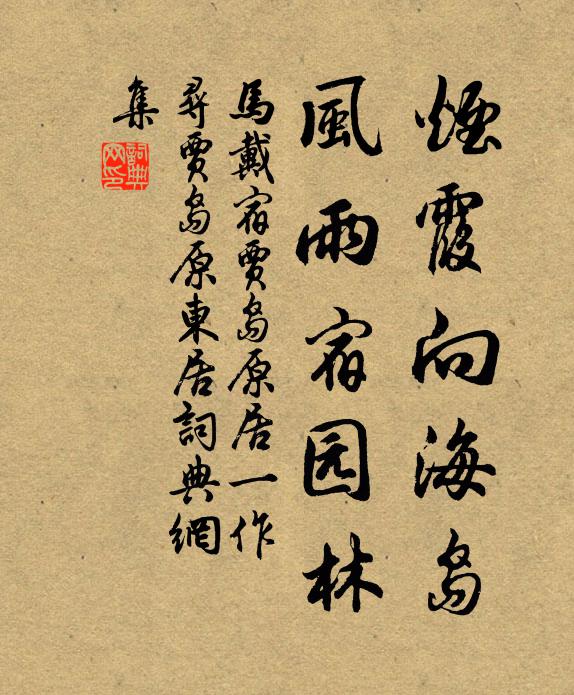 煙霞向海岛
風雨宿园林
馬戴宿賈岛原居一作
尋賈岛原東居詞典網
集
詞典
网印